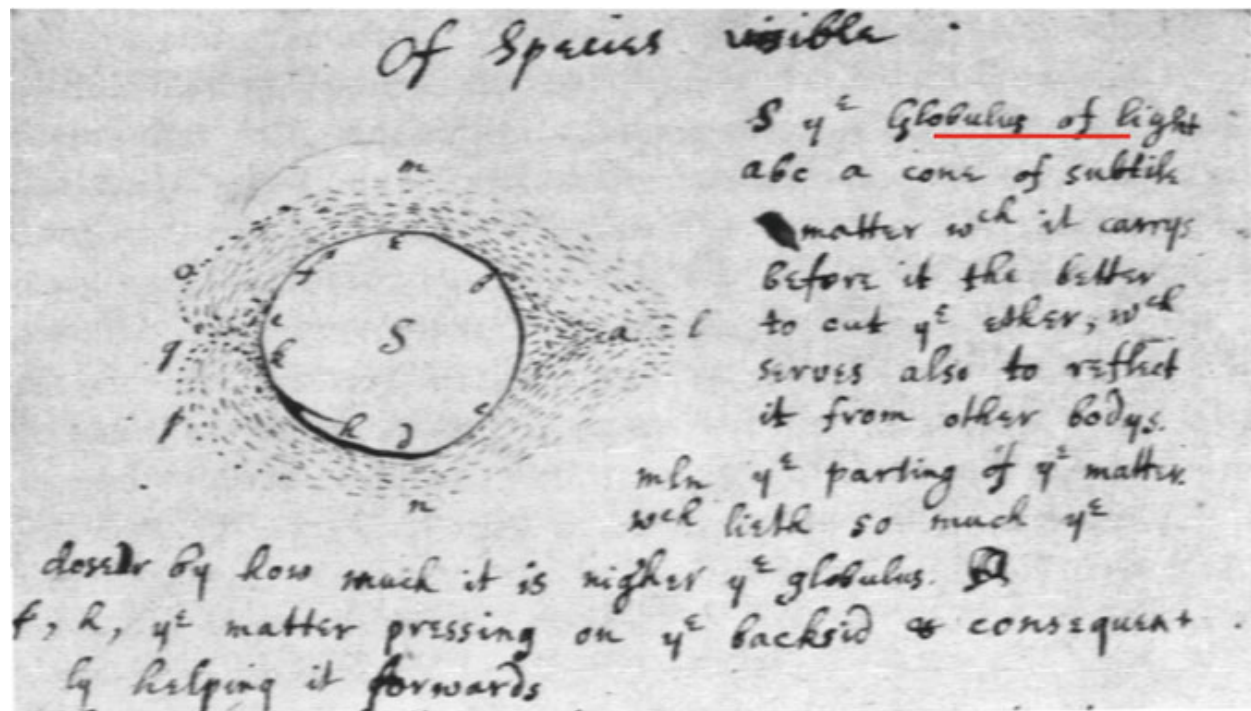 Of Species visible.
S yᵉ Globulus of light
abc a cone of subtile
matter wᶜʰ it carrys
before it the better
to cut yᵉ ether, wᶜʰ
serves also to reflect
it from other bodys.
mln yᵉ parting of yᵉ matter.
wᶜʰ lieth so much yᵉ
closer by how much it is nigher yᵉ globulus.
f, h, yᵉ matter pressing on yᵉ backsid & consequent
ly helping it forwards
m
e
f g
o
S
a l
q
k
p
h d c
n